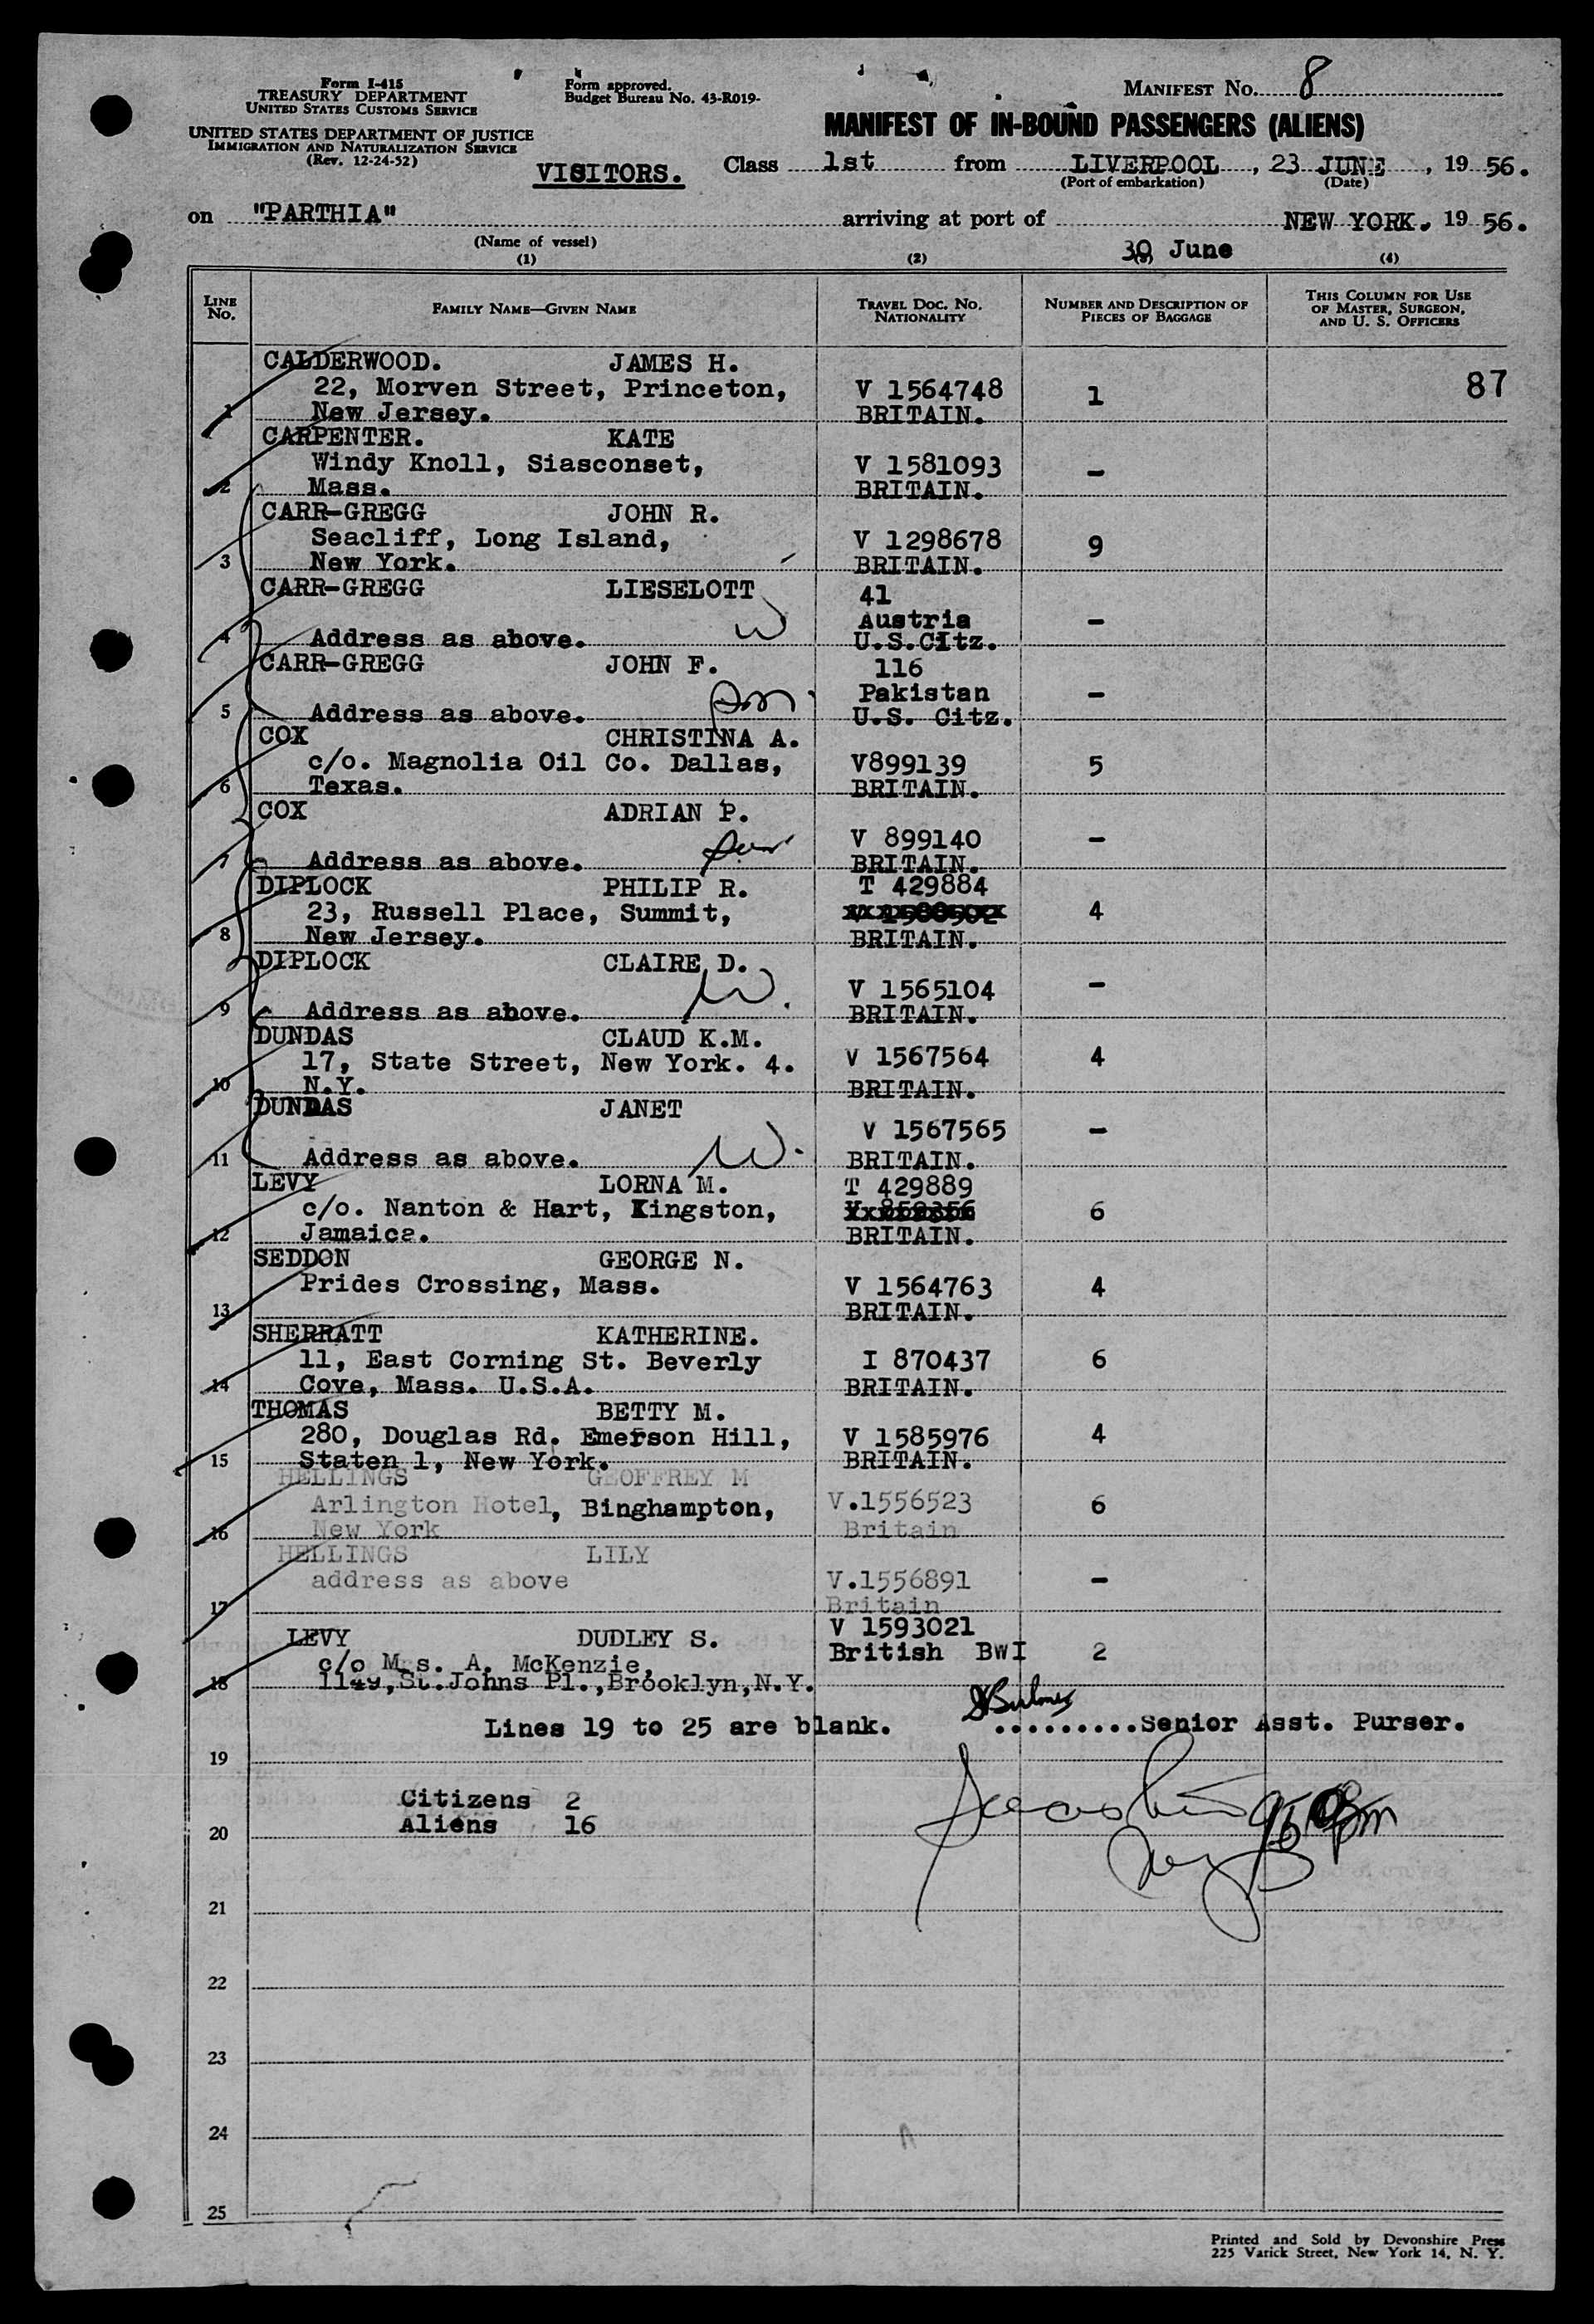 Form I-415
TREASURY DEPARTMENT
UNITED STATES CUSTOMS SERVICE
UNITED STATES DEPARTMENT OF JUSTICE
IMMIGRATION AND NATURALIZATION SERVICE
(Rev. 12-24-52)
Form approved.
Budget Bureau No. 43-R019-
MANIFEST No. 8
MANIFEST OF IN-BOUND PASSENGERS (ALIENS)
VISITORS.
Class 1st from LIVERPOOL, 23 JUNE, 19 56.
(Port of embarkation) (Date)
on "PARTHIA" arriving at port of NEW YORK. 19 56.
(Name of vessel) 30 June
(1) (2) (4)
LINE No. FAMILY NAME—GIVEN NAME TRAVEL DOC. NO. NATIONALITY NUMBER AND DESCRIPTION OF PIECES OF BAGGAGE THIS COLUMN FOR USE OF MASTER, SURGEON, AND U. S. OFFICERS
CALDERWOOD. JAMES H.
22, Morven Street, Princeton, V 1564748 1 87
1 New Jersey. BRITAIN.
CARPENTER. KATE
Windy Knoll, Siasconset, V 1581093 -
2 Mass. BRITAIN.
CARR-GREGG JOHN R.
Seacliff, Long Island, V 1298678 9
3 New York. BRITAIN.
CARR-GREGG LIESELOTT 41
Austria -
4 Address as above. W U.S.CItz.
CARR-GREGG JOHN F. 116
Pakistan -
5 Address as above. son U.S. Citz.
COX CHRISTINA A.
c/o. Magnolia Oil Co. Dallas, V899139 5
6 Texas. BRITAIN.
COX ADRIAN P.
V 899140 -
7 Address as above. son BRITAIN.
DIPLOCK PHILIP R. T 429884
23, Russell Place, Summit, 4
8 New Jersey. BRITAIN.
DIPLOCK CLAIRE D.
V 1565104 -
9 Address as above. W. BRITAIN.
DUNDAS CLAUD K.M.
17, State Street, New York. 4. V 1567564 4
10 N.Y. BRITAIN.
DUNDAS JANET
V 1567565 -
11 Address as above. W. BRITAIN.
LEVY LORNA M. T 429889
c/o. Nanton & Hart, Kingston, 6
12 Jamaica. BRITAIN.
SEDDON GEORGE N.
Prides Crossing, Mass. V 1564763 4
13 BRITAIN.
SHERRATT KATHERINE.
11, East Corning St. Beverly I 870437 6
14 Cove, Mass. U.S.A. BRITAIN.
THOMAS BETTY M.
280, Douglas Rd. Emerson Hill, V 1585976 4
15 Staten 1, New York. BRITAIN.
HELLINGS GEOFFREY M
Arlington Hotel, Binghampton, V.1556523 6
16 New York Britain
HELLINGS LILY
address as above V.1556891 -
17 Britain
V 1593021
LEVY DUDLEY S. British BWI 2
c/o Mrs. A. McKenzie,
18 1149,St.Johns Pl.,Brooklyn,N.Y.
Lines 19 to 25 are blank. .........Senior Asst. Purser.
19
Citizens 2
Aliens 16
20
21
22
23
24
25
Printed and Sold by Devonshire Press
225 Varick Street, New York 14, N. Y.